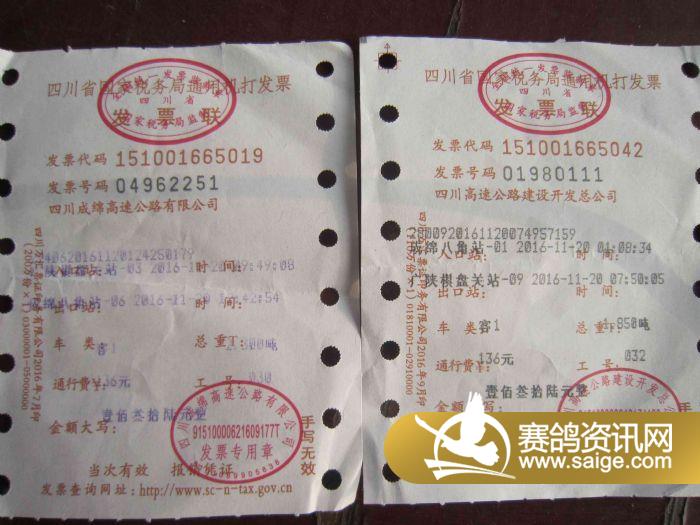 四川省国家税务局通用机打发票
全国统一发票监制章
四川省
国家税务局监制
发票联
发票代码 151001665019
发票号码 04962251
四川成绵高速公路有限公司
入口站:
-03 2016-11-20
9:49:08
时间:
出口站:
绵八角站-06 2016-11-20
:42:54
时间:
车类:
客1
总重T:
吨
通行费¥:
136元
工号:
030
壹佰叁拾陆元整
金额大写:
四川成绵高速公路有限公司
91510000621609177T
发票专用章
手写无效
当次有效 报销凭证
发票查询网址:http://www.sc-n-tax.gov.cn
四川省国家税务局通用机打发票
四川省
国家税务局监制
发票联
发票代码 151001665042
发票号码 01980111
四川高速公路建设开发总公司
2000920161120074957159
成绵八角站-01 2016-11-20 01:08:34
入口站:
时间:
广陕棋盘关站-09 2016-11-20 07:50:05
出口站:
时间:
车类:
客1
总重T:
1.850吨
通行费¥:
136元
工号:
032
壹佰叁拾陆元整
金额大写:
赛鸽资讯网
www.saige.com